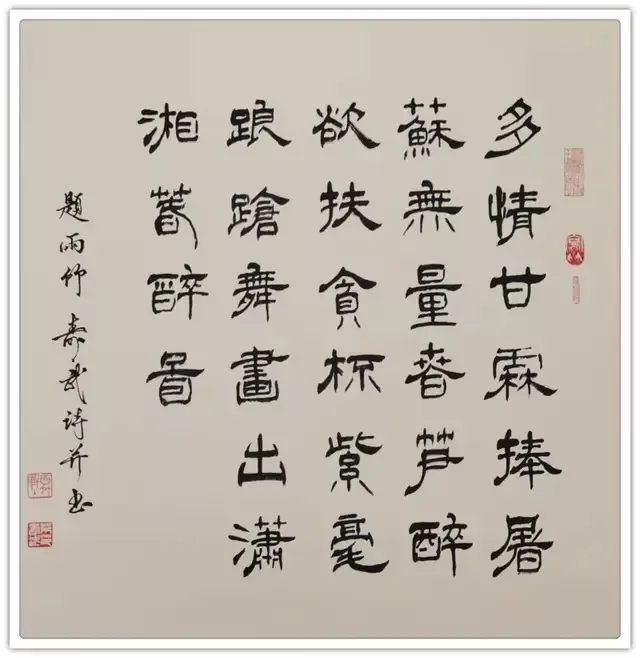 多情甘霖捧屠
蘇無量春笋醉
欲扶貪杯紫毫
踉蹌舞畫出瀟
湘萅醉啚
題雨竹 壽武詩并书